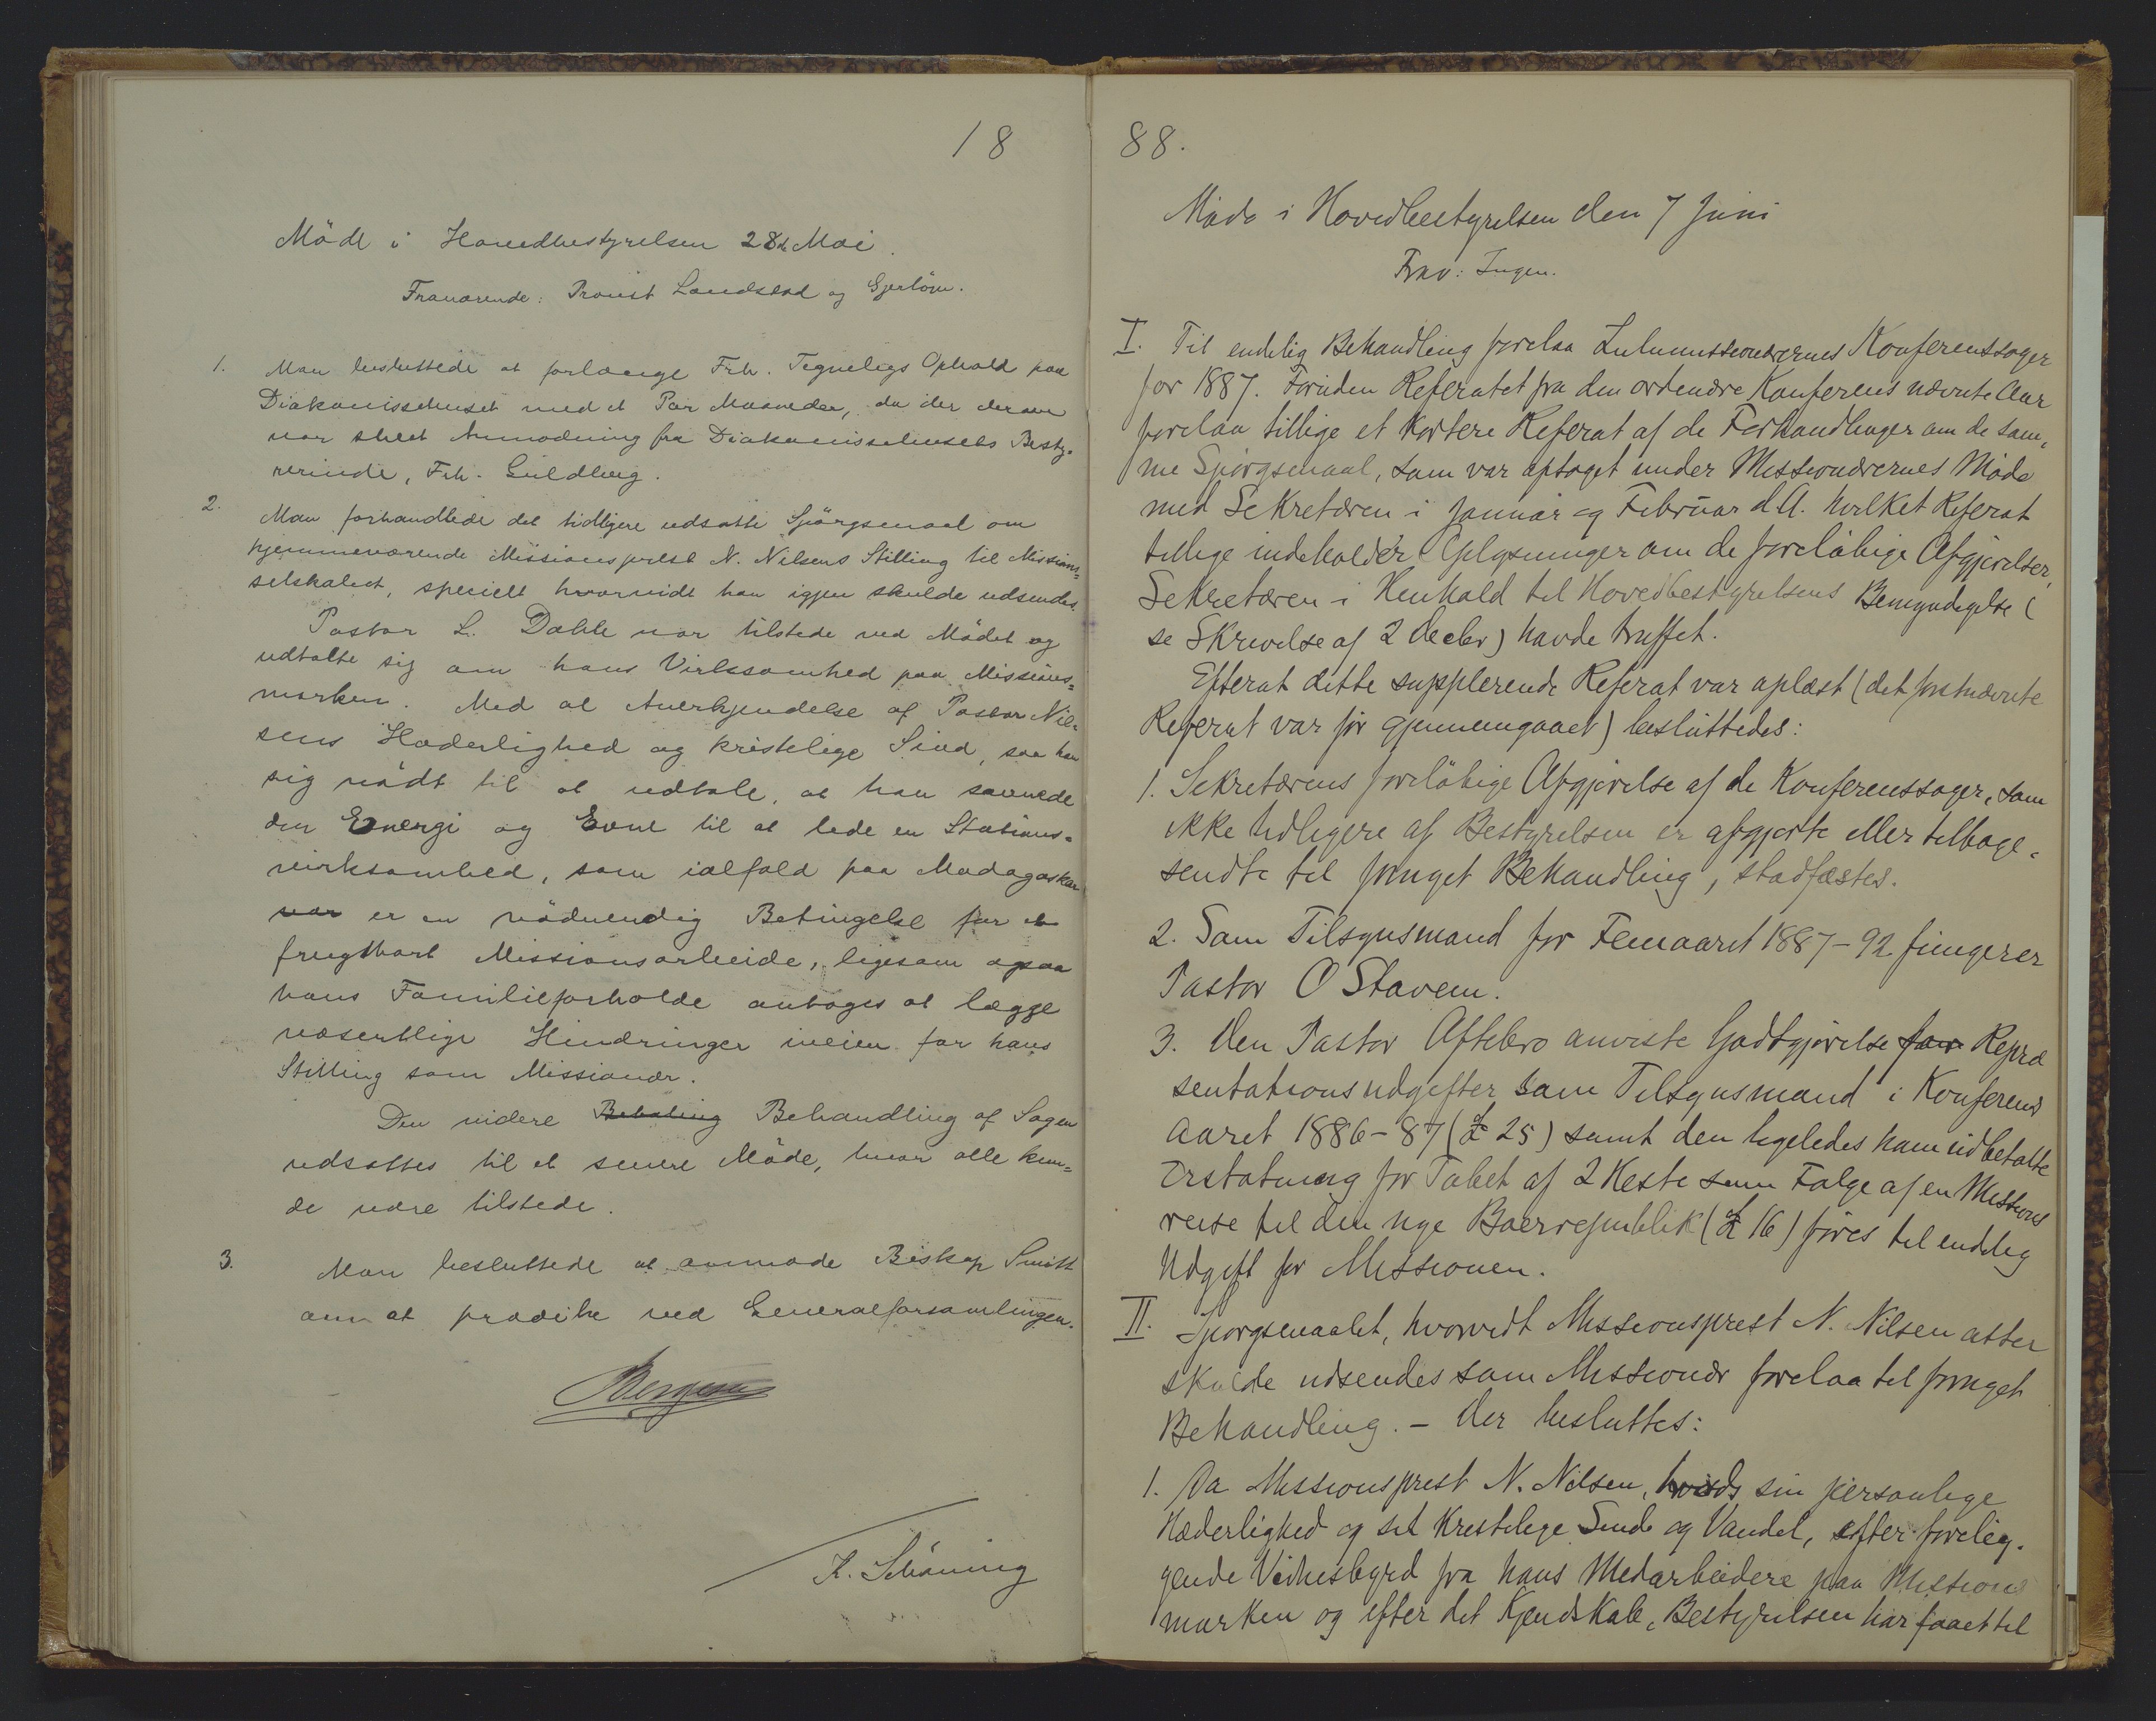 18
Möde i Hovedbestyrelsen 28de Mai.
Fraværende: Provst Landstad og Gjerløw.
1. Man besluttede at forlænge Frk. Tegneligs Ophold paa
Diakonissehuset med et Par Maaneder, da der derom
var skeet Anmodning fra Diakonissehusets Besty-
rerinde, Frk. Guldberg.
2. Man forhandlede det tidligere udsatte Spörgsmaal om
hjemmeværende Missionsprest N. Nilsens Stilling til Missions=
selskabet, specielt hvorvidt han igjen skulde udsendes.
Pastor L. Dahle var tilstede ved Mödet og
udtalte sig om hans Virksomhed paa Missions=
marken. Med al Anerkjendelse af Pastor Nil=
sens Hæderlighed og kristelige Sind, saa han
sig nödt til at udtale, at han savnede
den Energi og Evne til at lede en Stations=
virksomhed, som ialfald paa Madagaskar
var er en nödvendig Betingelse for et
frugtbart Missionsarbeide, ligesom ogsaa
hans Familieforholde antoges at lægge
væsentlige Hindringer iveien for hans
Stilling som Missionær.
Den videre Behaling Behandling af Sagen
udsattes til et senere Möde, hvor alle kun=
de være tilstede.
3. Man besluttede at anmode Biskop Smitt
om at prædike ved Generalforsamlingen.
K. Schöning
88.
Möde i Hovedbestyrelsen den 7 Juni
Frav: Ingen.
I. Til endelig Behandling forelaa Zulumissionærernes Konferenssager
for 1887. Foruden Referatet fra den ordenære Konferens nævnte Aar
forelaa tillige et kortere Referat af de Forhandlinger om de sam,
me Spörgsmaal, som var optaget under Missionærernes Möde
med Sekretæren i Januar og Februar d.A. hvilket Referat
tillige indeholder Oplysninger om de forelöbige Afgjörelser,
Sekretæren i Henhold til Hovedbestyrelsens Bemyndigelse (
se Skrivelse af 2 Decbr) havde truffet.
Efterat dette supplerende Referat var oplæst (det förstnævnte
Referat var för gjennemgaaet) besluttedes:
1. Sekretærens forelöbige Afgjörelse af de Konferenssager, som
ikke tidligere af Bestyrelsen er afgjorte eller tilbage-
sendte til fornyet Behandling, stadfæstes.
2. Som Tilsynsmand for Femaaret 1887-92 fungerer
Pastor O Stavem.
3. Den Pastor Oftebro anviste Godtgjörelse for Repræ
sentationsudgifter som Tilsynsmand i Konferens
Aaret 1886-87 (£ 25) samt den ligeledes ham udbetalte
Erstatning for Tabet af 2 Heste som Fölge af en Missions
reise til den nye Boerrepublik (£ 16) föres til endelig
Udgift for Missionen.
II. Spörgsmaalet, hvorvidt Missionsprest N. Nilsen atter
skulde udsendes som Missionær forelaa til fornyet
Behandling. - Der besluttes:
1. Da Missionsprest N. Nilsen, sin personlige
Hæderlighed og sit kristelige Sind og Vandel, efter forelig-
gende Vidnesbyrd fra hans Medarbeidere paa Missions
marken og efter det Kjendskab, Bestyrelsen har faaet til